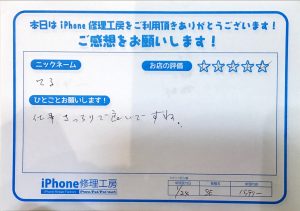 本日は iPhone 修理工房をご利用頂きありがとうございます!
ご感想をお願いします!
ニックネーム
お店の評価
☆☆☆☆☆
てる
ひとことお願いします!
仕事きっちりで良いですね。
iPhone修理工房
1/28
SE
バッテリー